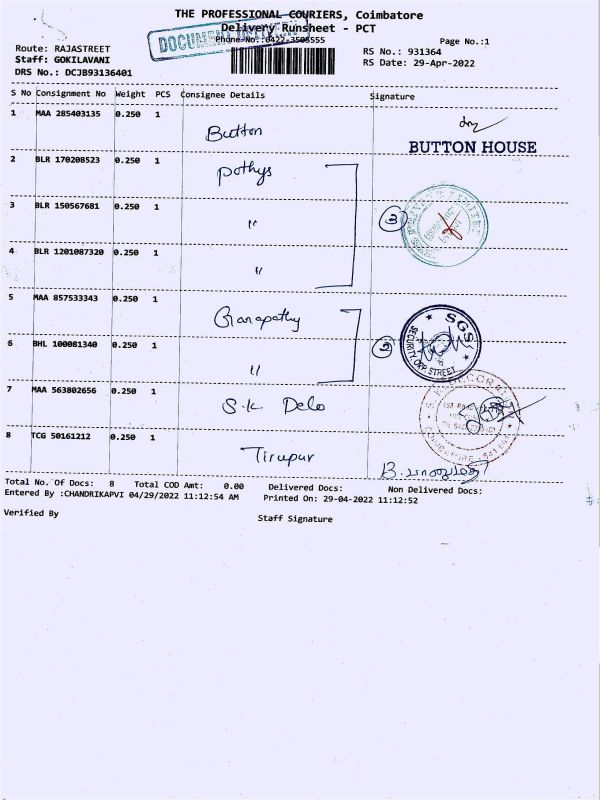 THE PROFESSIONAL COURIERS, Coimbatore
Delivery Runsheet - PCT
Phone No.:0422-3505555
Page No.:1
Route: RAJASTREET
RS No.: 931364
Staff: GOKILAVANI
RS Date: 29-Apr-2022
DRS No.: DCJB93136401
S No Consignment No Weight PCS Consignee Details Signature
1 MAA 285403135 0.250 1 Button
BUTTON HOUSE
2 BLR 170208523 0.250 1 Pothys
3 BLR 150567681 0.250 1 " 3
4 BLR 1201087320 0.250 1 "
5 MAA 857533343 0.250 1 Ganapathy
SGS
SECURITY, OPP STREET
6 BHL 100081340 0.250 1 " 2
7 MAA 563802656 0.250 1 S.K. Delo
8 TCG 50161212 0.250 1 Tirupur
Total No. Of Docs: 8 Total COD Amt: 0.00 Delivered Docs: Non Delivered Docs:
Entered By :CHANDRIKAPVI 04/29/2022 11:12:54 AM Printed On: 29-04-2022 11:12:52
Verified By
Staff Signature